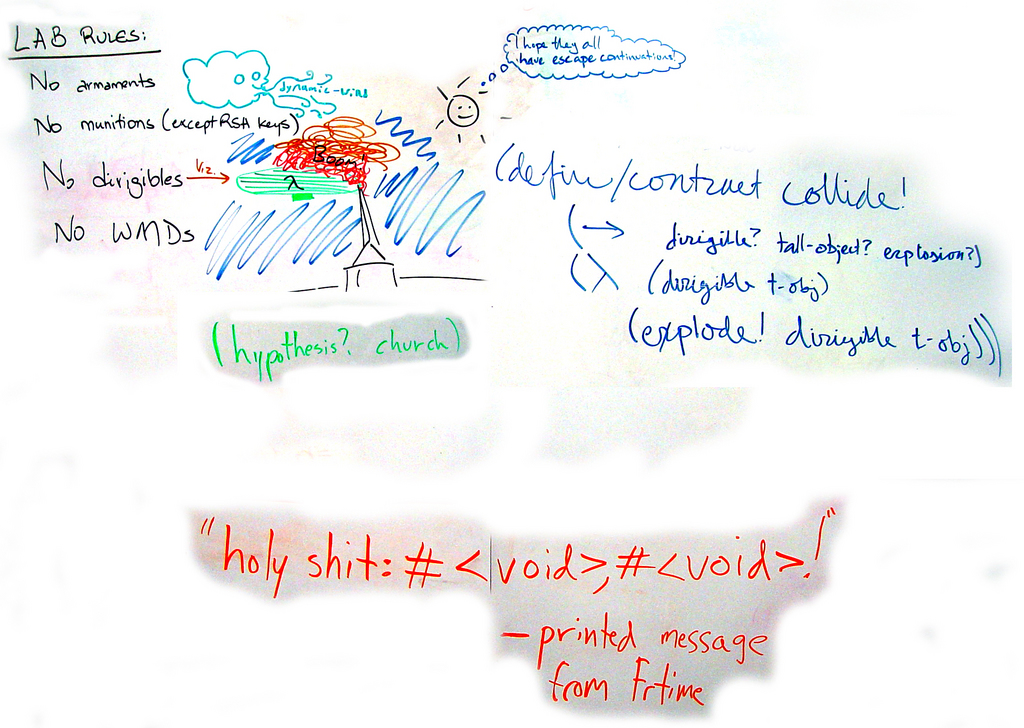 LAB RULES:
No armaments
No munitions (except RSA keys)
No dirigibles
viz.
No WMDs
dynamic-wind
Boom!
λ
I hope they all
have escape continuations!
(define/contract collide!
(→ dirigible? tall-object? explosion?)
(λ (dirigible t-obj)
(explode! dirigible t-obj)))
(hypothesis? church)
"holy shit: #<void>, #<void>!"
- printed message
from Frtime